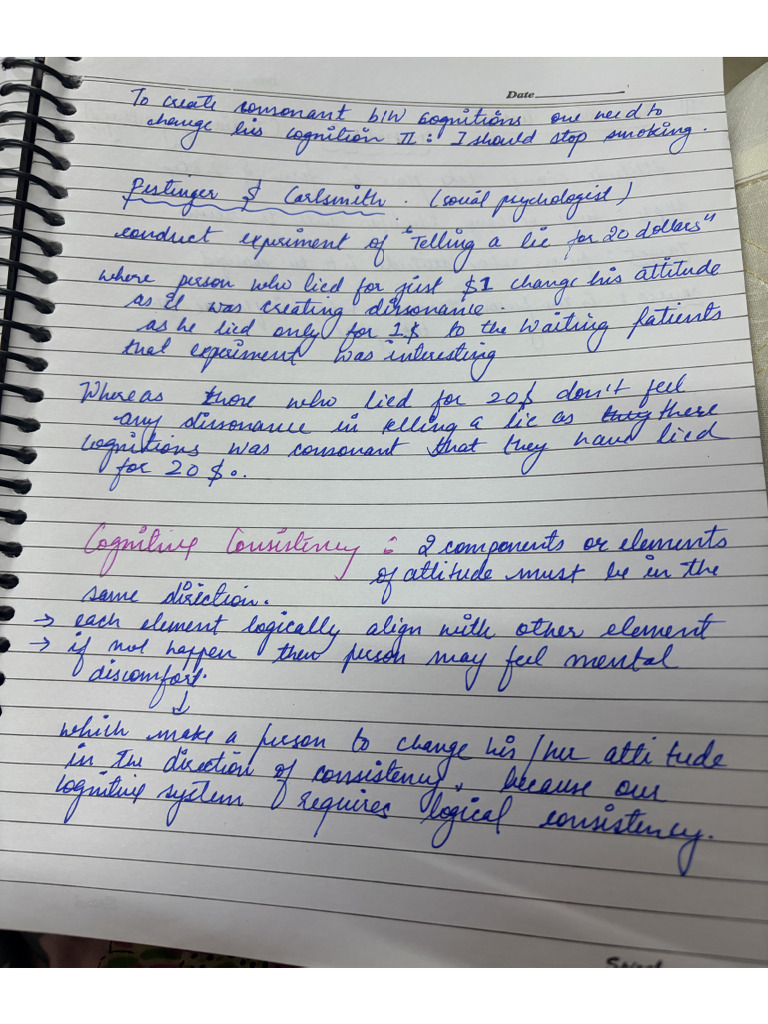 Date
To create consonant b/w cognitions one need to
change his cognition II : I should stop smoking.
Festinger & Carlsmith . (social psychologist)
conduct experiment of "Telling a lie for 20 dollars"
where person who lied for just $1 change his attitude
as it was creating dissonance.
as he lied only for 1$ to the waiting patients
that experiment was interesting
Whereas those who lied for 20$ don't feel
any dissonance in telling a lie as they there
cognitions was consonant that they have lied
for 20 $.
Cognitive Consistency : 2 components or elements
of attitude must be in the
same direction.
→ each element logically align with other element
→ if not happen then person may feel mental
discomfort.
↓
which make a person to change his/her attitude
in the direction of consistency, because our
cognitive system requires logical consistency.